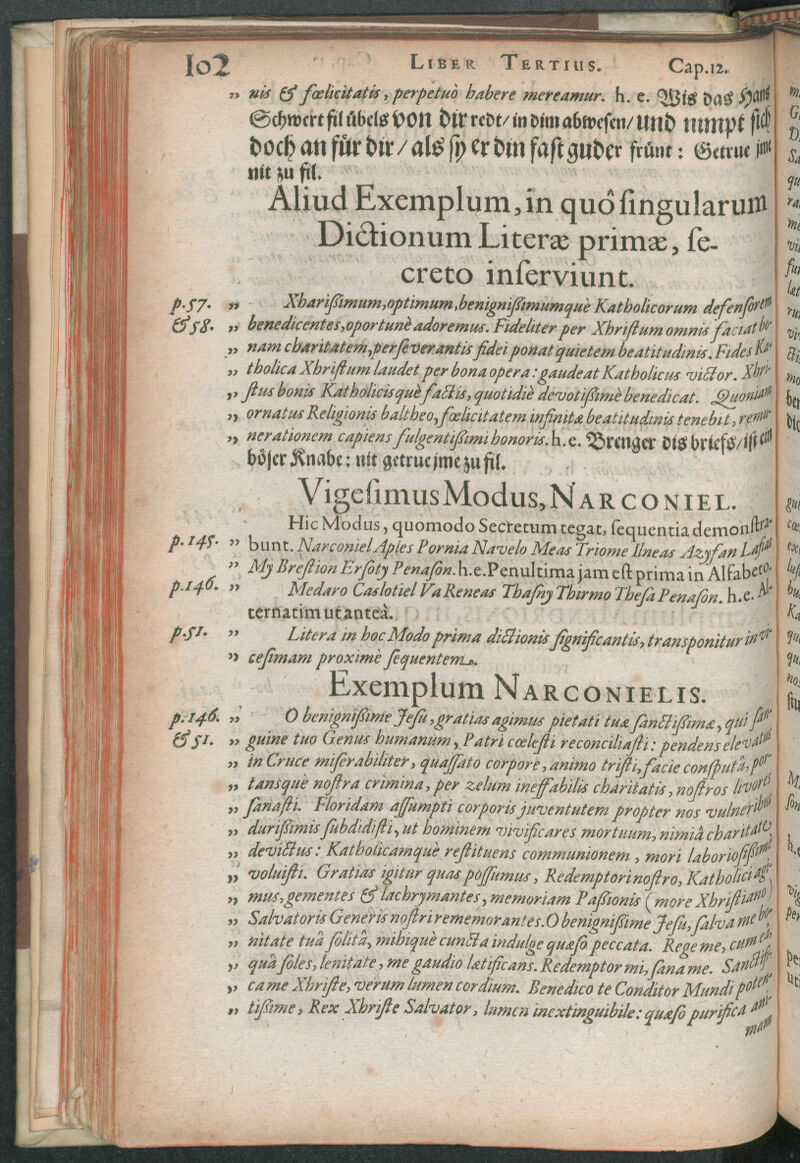 102 LIBER TERTIUS. Cap.12.
„ nis & fœlicitatis, perpetuò habere mereamur. h. e. Wis das Hans
Schwert fil übels von dir redt/ in dim abwesen/ und nimpt sich
doch an für dir/ als sy er din fast guder frünt: Getrue jme
nit zu fil.
Aliud Exemplum, in quô singularum
Dictionum Literæ primæ, se-
creto inserviunt.
p.57. „ Xharißimum,optimum,benignißimumquè Katholicorum defensorem
&58. „ benedicentes,oportunè adoremus. Fideliter per Xhristum omnis faciat be-
„ nam charitatem,perseverantis fidei ponat quietem beatitudinis. Fides Ka-
„ tholica Xhristum laudet per bona opera: gaudeat Katholicus victor. Xhri-
„ stus bonis Katholicisquè factis, quotidiè devotißimè benedicat. Quoniam
„ ornatus Religionis baltheo, fœlicitatem infinitæ beatitudinis tenebit, remu-
„ nerationem capiens fulgentißimi honoris. h.e. Brenger dis briefs/ ist ein
böser Knabe: nit getrue jme zu fil.
Vigesimus Modus, NARCONIEL.
Hic Modus, quomodo Secretum tegat, sequentia demonstra-
p.145. „ bunt. Narconiel Aples Pornia Navelo Meas Triome Ilneas Azyfan Lasias
„ My Brestion Ersoty Penason. h.e. Penultima jam est prima in Alfabeto.
p.146. „ Medaro Caslotiel Va Reneas Thasny Thirmo Thesa Penason. h.e. Al-
ternatim ut anteà.
p.51. „ Litera in hoc Modo prima dictionis significantis, transponitur in vi-
„ cesimam proximè sequentem.
Exemplum NARCONIELIS.
p.146. „ O benignißime Jesu, gratias agimus pietati tuæ sanctißimæ, qui san-
&51. „ guine tuo Genus humanum, Patri cœlesti reconciliasti: pendens elevatus
„ in Cruce miserabiliter, quassato corpore, animo tristi, facie consputâ, por-
„ tansquè nostra crimina, per zelum ineffabilis charitatis, nostros livores
„ sanasti. Floridam assumpti corporis juventutem propter nos vulneribus
„ durißimis subdidisti, ut hominem vivificares mortuum, nimiâ charitate
„ devictus: Katholicamquè restituens communionem, mori laboriosißimè
„ voluisti. Gratias igitur quas possumus, Redemptori nostro, Katholici agi-
„ mus, gementes & lachrymantes, memoriam Paßionis (more Xhristiano)
„ Salvatoris Generis nostri rememorantes. O benignißime Jesu, salva me be-
„ nitate tuâ solitâ, mihiquè cuncta indulge quæso peccata. Rege me, cum eâ
„ quâ soles, lenitate, me gaudio lætificans. Redemptor mi, sana me. Sanctifi-
„ ca me Xhriste, verum lumen cordium. Benedico te Conditor Mundi poten-
„ tißime, Rex Xhriste Salvator, lumen inextinguibile: quæso purifica ani-
mam